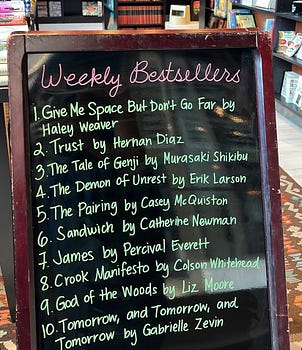 Weekly Bestsellers
1. Give Me Space But Don't Go Far by
Haley Weaver
2. Trust by Hernan Diaz
3. The Tale of Genji by Murasaki Shikibu
4. The Demon of Unrest by Erik Larson
5. The Pairing by Casey McQuiston
6. Sandwich by Catherine Newman
7. James by Percival Everett
8. Crook Manifesto by Colson Whitehead
9. God of the Woods by Liz Moore
10. Tomorrow, and Tomorrow, and
Tomorrow by Gabrielle Zevin